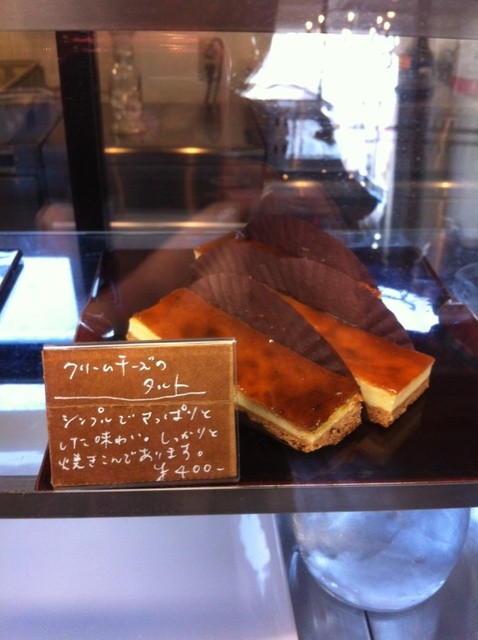 クリームチーズの
タルト
シンプルでさっぱりと
した味わい。しっかりと
焼きこんであります。
¥400-